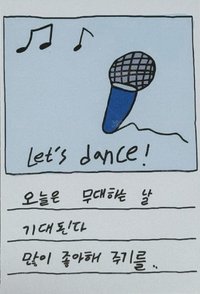 Let's dance!
오늘은 무대하는 날
기대된다
많이 좋아해 주기를..